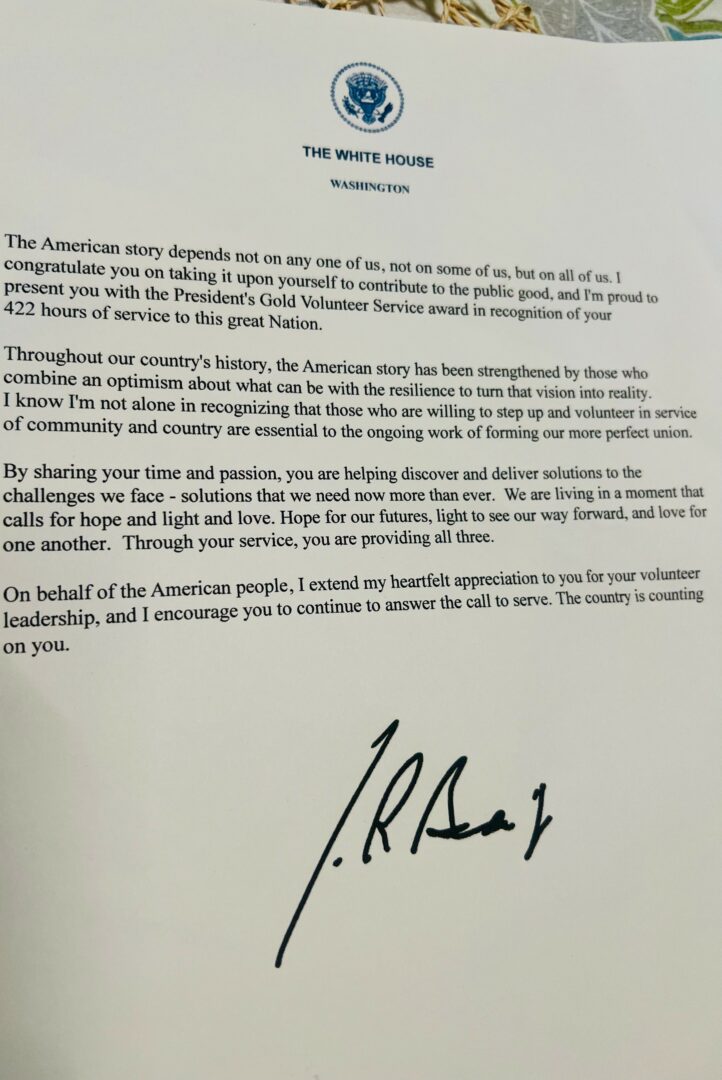 THE WHITE HOUSE
WASHINGTON
The American story depends not on any one of us, not on some of us, but on all of us. I
congratulate you on taking it upon yourself to contribute to the public good, and I'm proud to
present you with the President's Gold Volunteer Service award in recognition of your
422 hours of service to this great Nation.
Throughout our country's history, the American story has been strengthened by those who
combine an optimism about what can be with the resilience to turn that vision into reality.
I know I'm not alone in recognizing that those who are willing to step up and volunteer in service
of community and country are essential to the ongoing work of forming our more perfect union.
By sharing your time and passion, you are helping discover and deliver solutions to the
challenges we face - solutions that we need now more than ever.  We are living in a moment that
calls for hope and light and love. Hope for our futures, light to see our way forward, and love for
one another.  Through your service, you are providing all three.
On behalf of the American people, I extend my heartfelt appreciation to you for your volunteer
leadership, and I encourage you to continue to answer the call to serve. The country is counting
on you.